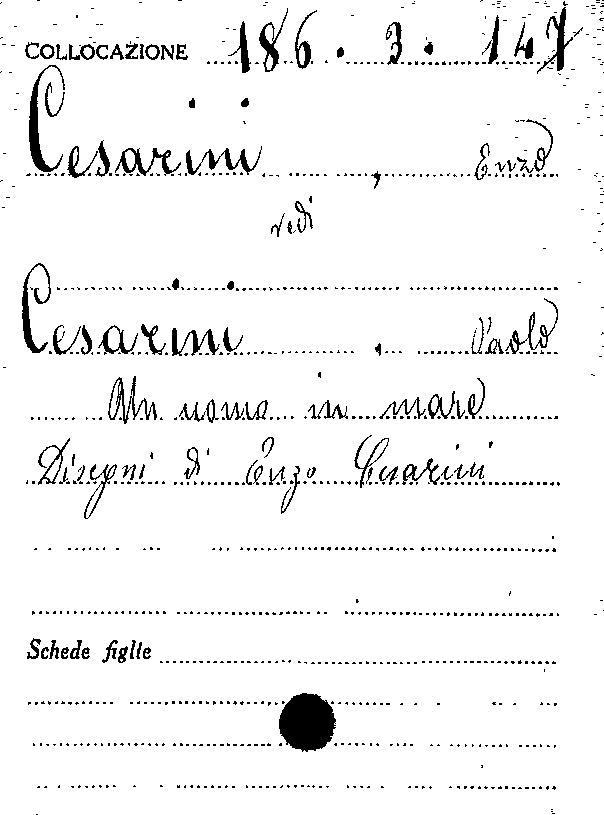 COLLOCAZIONE 186. 3. 147
Cesarini, Enzo
vedi
Cesarini, Paolo
Un uomo in mare
Disegni di Enzo Cesarini
Schede figlie